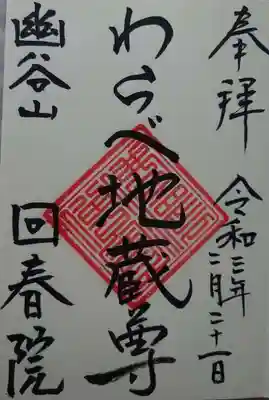 奉拝
令和三年二月二十一日
わらべ地蔵尊
幽谷山
回春院